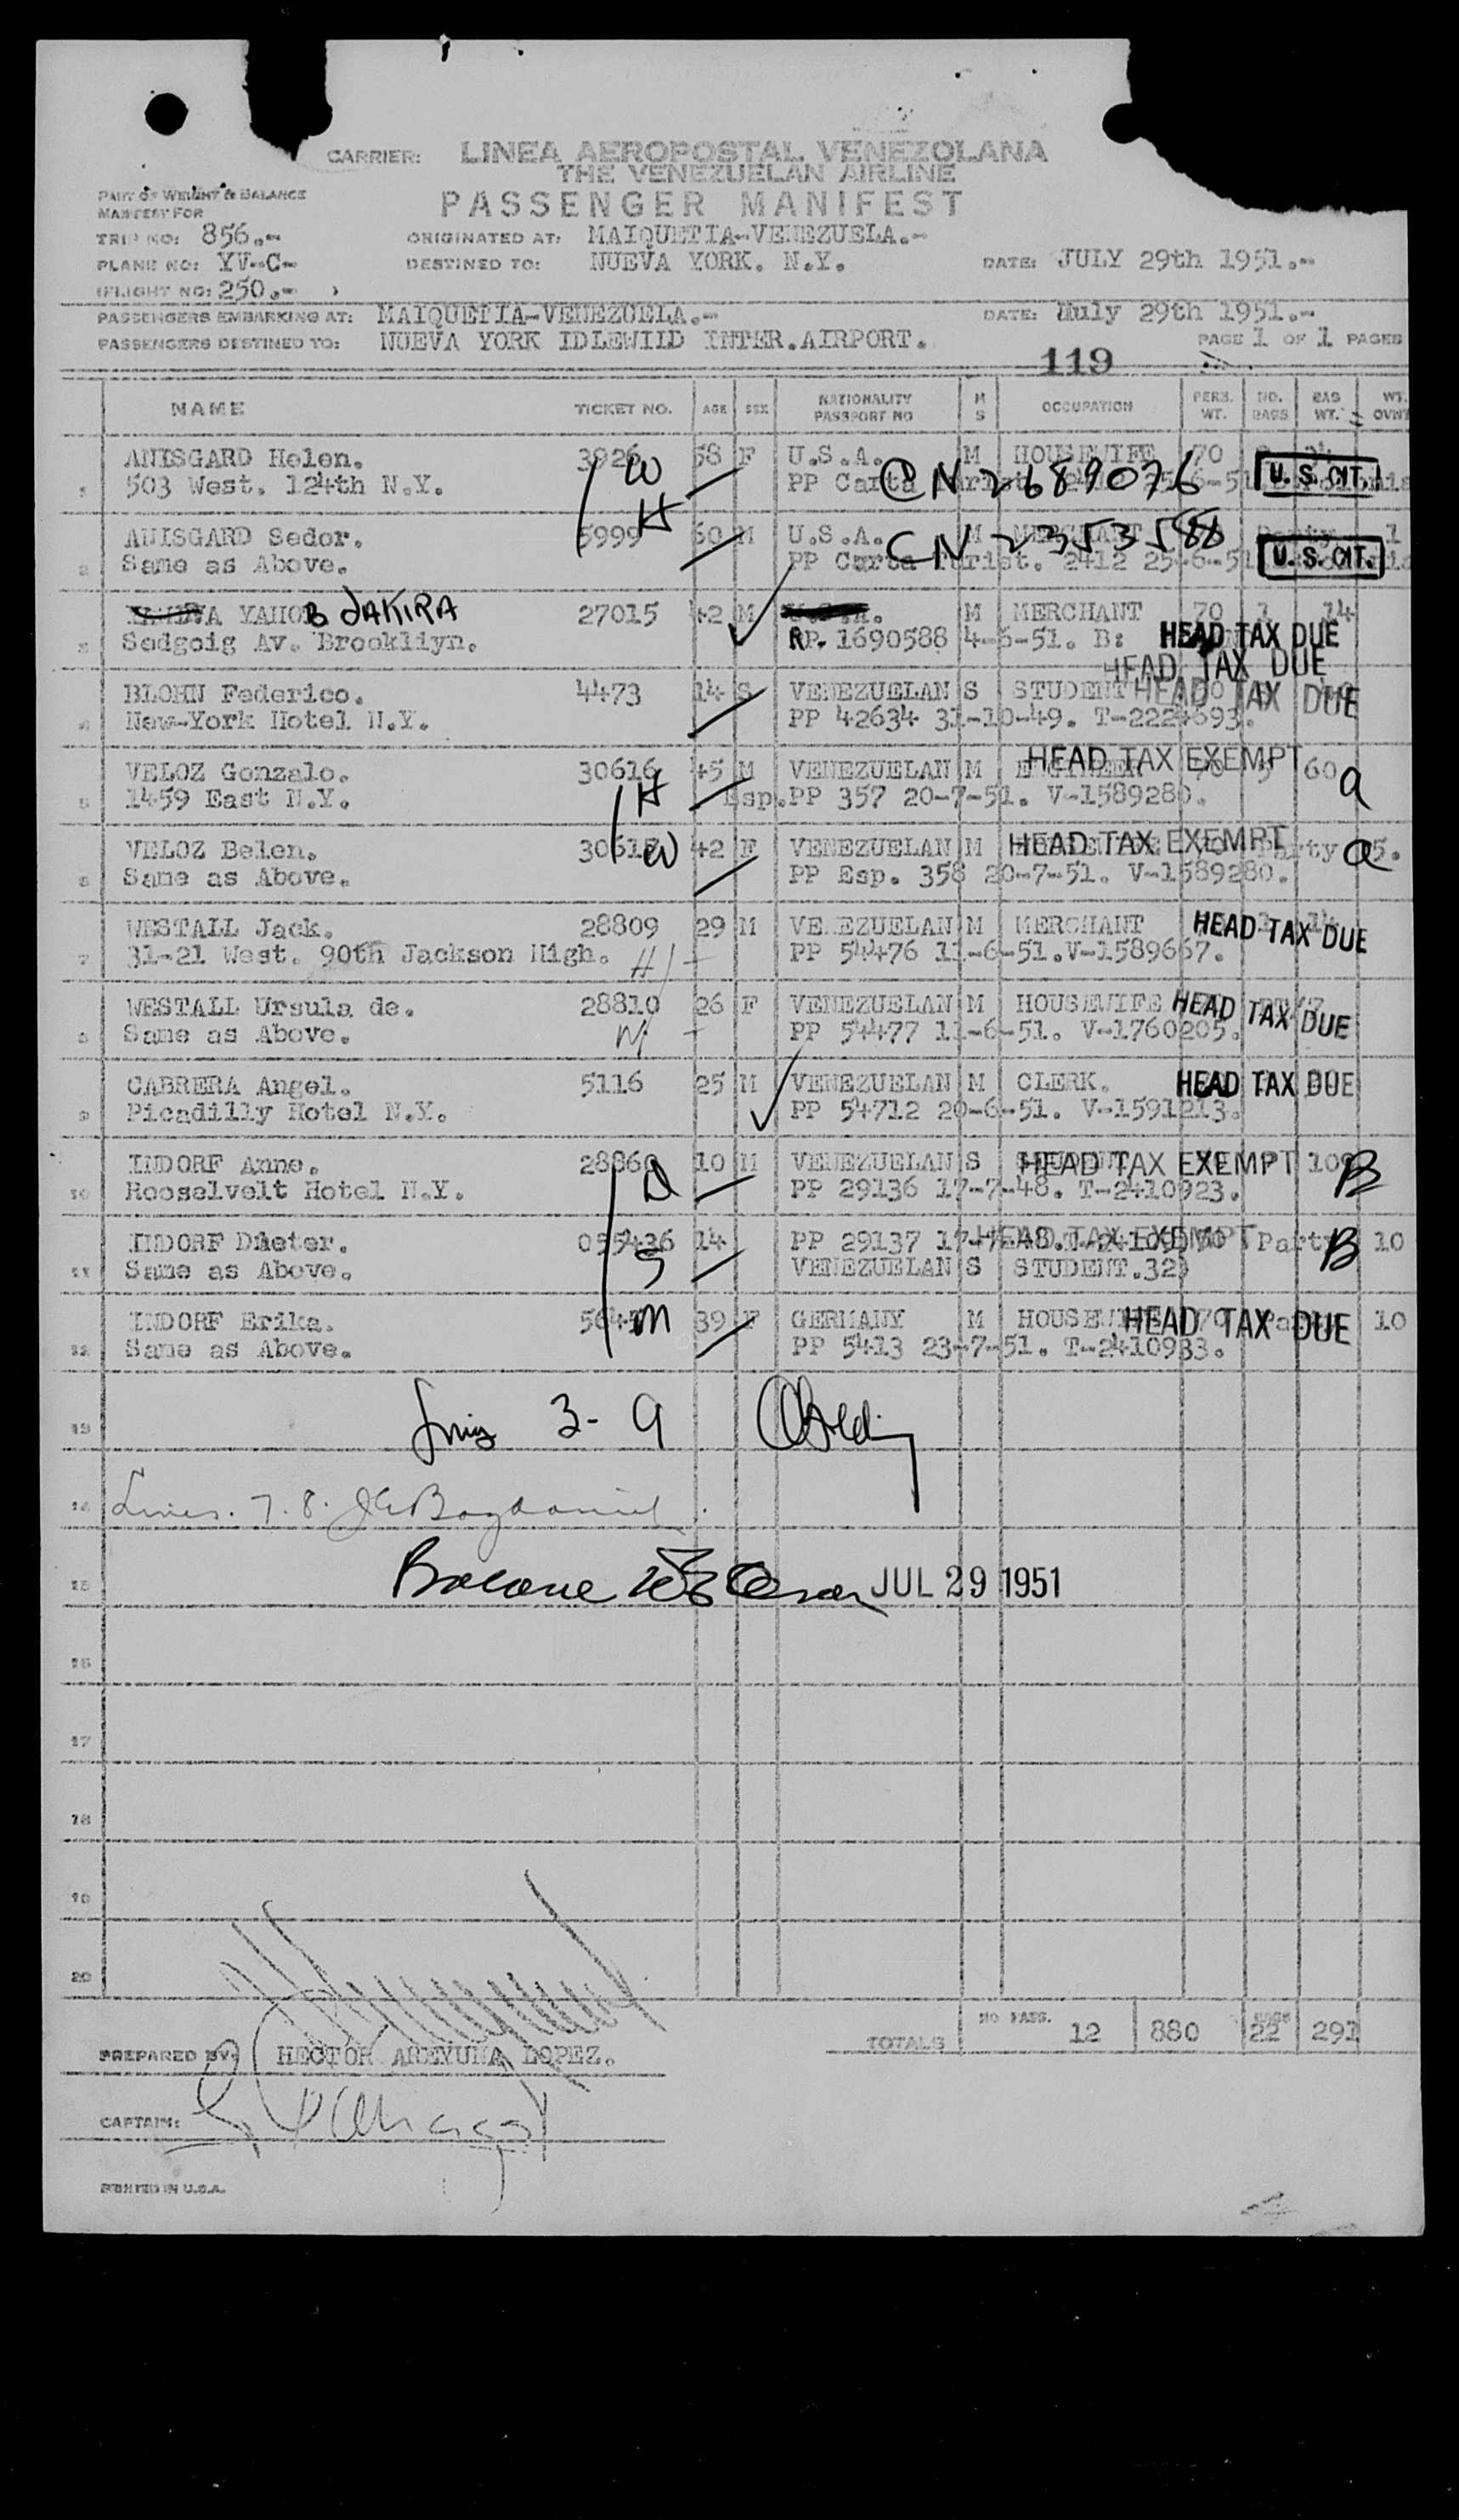 CARRIER: LINEA AEROPOSTAL VENEZOLANA
THE VENEZUELAN AIRLINE
PASSENGER MANIFEST
PART OF WEIGHT & BALANCE
MANIFEST FOR
TRIP NO: 856.-
ORIGINATED AT: MAIQUETIA-VENEZUELA.-
PLANE NO: YV-C-
DESTINED TO: NUEVA YORK. N.Y.
DATE: JULY 29th 1951.--
(FLIGHT NO: 250.- )
PASSENGERS EMBARKING AT: MAIQUETIA-VENEZUELA.-
DATE: July 29th 1951.--
PASSENGERS DESTINED TO: NUEVA YORK IDLEWILD INTER.AIRPORT.
PAGE 1 OF 1 PAGES
119
NAME TICKET NO. AGE SEX NATIONALITY PASSPORT NO M S OCCUPATION PERS. WT. NO. BAGS BAG WT. WT.
1 ANISGARD Helen. 3926 W 58 F U.S.A. M HOUSEWIFE 70
503 West. 124th N.Y. PP Carta CN 2689076 U.S. CIT.
2 ANISGARD Sedor. 5999 H 60 M U.S.A. M MERCHANT Party 1
Same as Above. PP Carta Turist. 2412 25-6-51 CN 2353588 U.S. CIT.
3 YAHOB JAKIRA 27015 42 M M MERCHANT 70 1 14
Sedgoig Av. Brookliyn. PP. 1690588 4-6-51. B: HEAD TAX DUE
HEAD TAX DUE
4 BLOHN Federico. 4473 14 S VENEZUELAN S STUDENT HEAD TAX DUE
New-York Hotel N.Y. PP 42634 31-10-49. T-2224693.
5 VELOZ Gonzalo. 30616 H 45 M VENEZUELAN M ENGINEER 70 60 HEAD TAX EXEMPT a
1459 East N.Y. Esp.PP 357 20-7-51. V-1589280.
6 VELOZ Belen. 30617 W 42 F VENEZUELAN M HEAD TAX EXEMPT Party a 5.
Same as Above. PP Esp. 358 20-7-51. V-1589280.
7 WESTALL Jack. 28809 29 M VENEZUELAN M MERCHANT HEAD TAX DUE
31-21 West. 90th Jackson High. H PP 54476 11-6-51.V-1589667.
8 WESTALL Ursula de. 28810 26 F VENEZUELAN M HOUSEWIFE HEAD TAX DUE
Same as Above. W PP 54477 11-6-51. V-1760205.
9 CABRERA Angel. 5116 25 M VENEZUELAN M CLERK. HEAD TAX DUE
Picadilly Hotel N.Y. PP 54712 20-6-51. V-1591213.
10 INDORF Anne. 28860 D 10 M VENEZUELAN S HEAD TAX EXEMPT B
Rooselvelt Hotel N.Y. PP 29136 17-7-48. T-2410923.
11 INDORF Dieter. 055436 14 PP 29137 HEAD TAX EXEMPT Party B 10
Same as Above. S VENEZUELAN S STUDENT.
12 INDORF Erika. M 39 F GERMANY M HOUSEWIFE HEAD TAX DUE 10
Same as Above. PP 5413 23-7-51. T-2410933.
13 3-9
14 Lines. 7. 8.
15 JUL 29 1951
16
17
18
19
20
TOTALS NO PASS. 12 880 BAGS 22 291
PREPARED BY: HECTOR LOPEZ.
CAPTAIN:
PRINTED IN U.S.A.